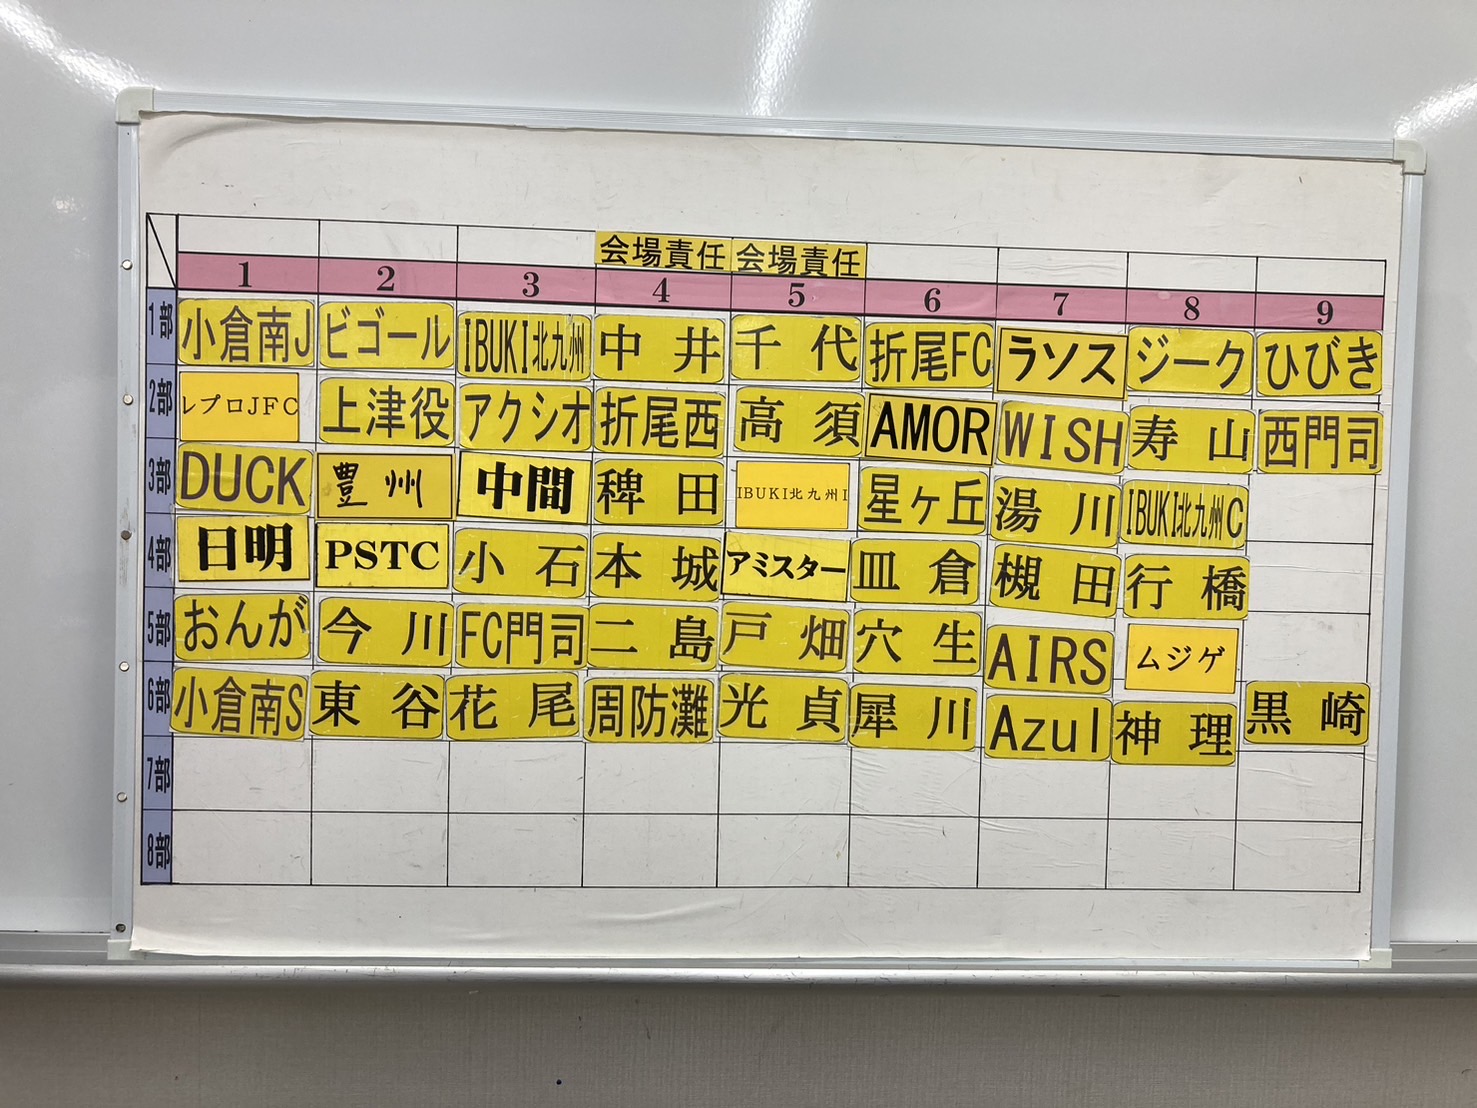 会場責任 会場責任
1 2 3 4 5 6 7 8 9
1部 小倉南J ビゴール IBUKI北九州 中井 千代 折尾FC ラソス ジーク ひびき
2部 レプロJFC 上津役 アクシオ 折尾西 高須 AMOR WISH 寿山 西門司
3部 DUCK 豊州 中間 稗田 IBUKI北九州I 星ヶ丘 湯川 IBUKI北九州C
4部 日明 PSTC 小石 本城 アミスター 皿倉 槻田 行橋
5部 おんが 今川 FC門司 二島 戸畑 穴生 AIRS ムジゲ
6部 小倉南S 東谷 花尾 周防灘 光貞 犀川 Azul 神理 黒崎
7部
8部